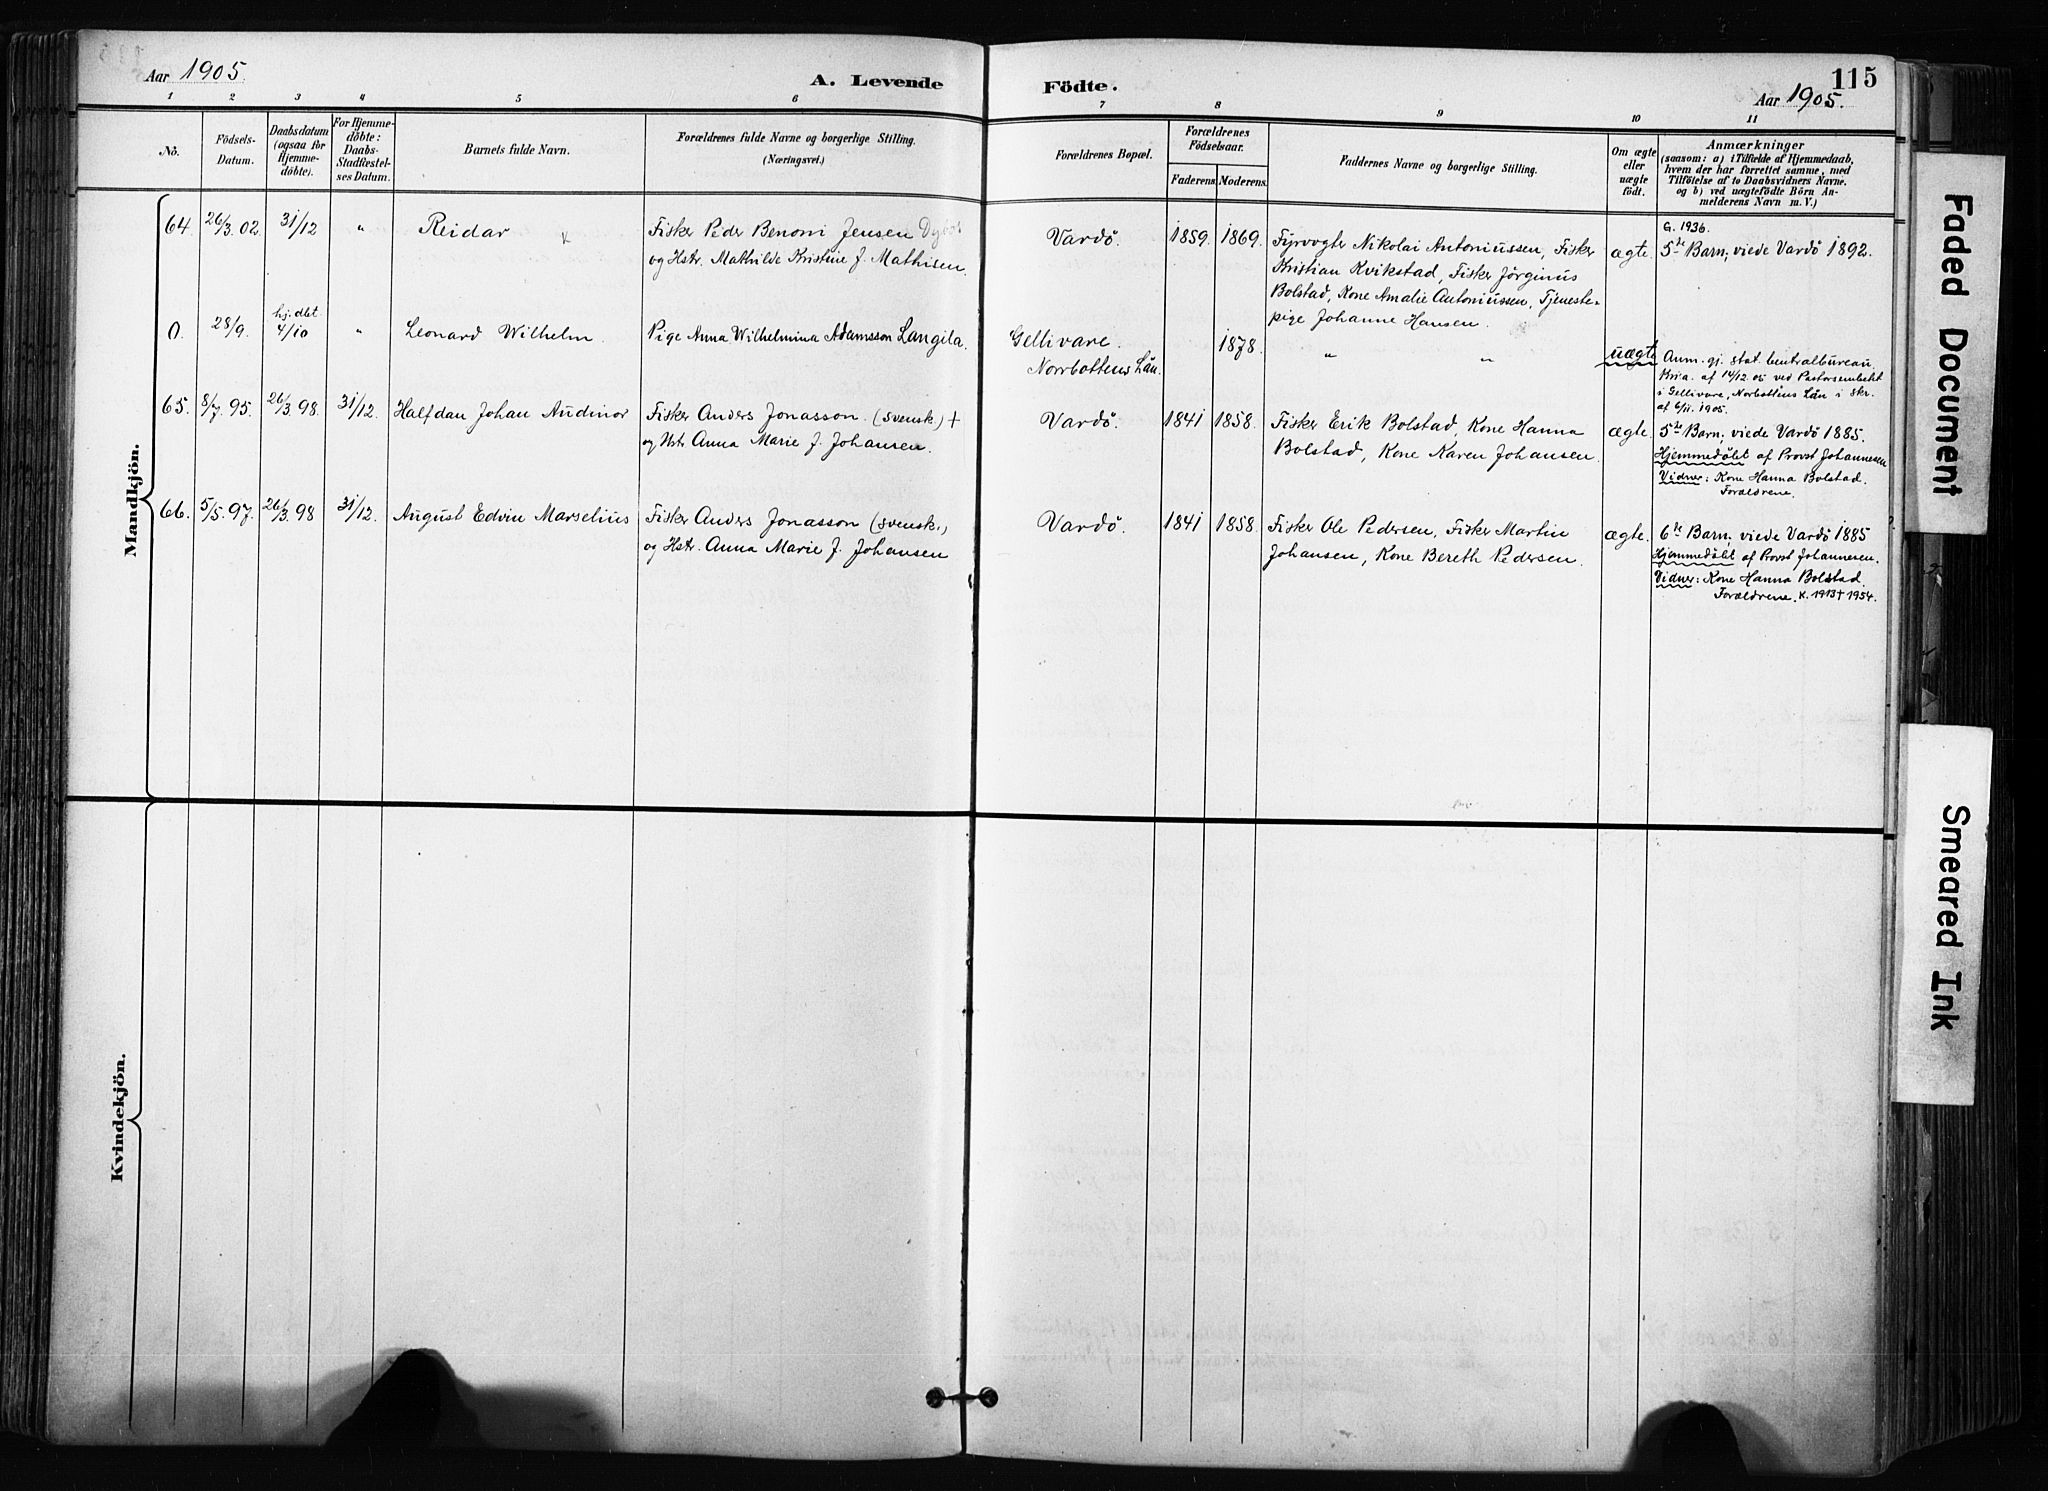 Aar 1905.
A. Levende Födte.
115
Aar 1905.
1 2 3 4 5 6 7 8 9 10 11
No.
Födsels-Datum.
Daabsdatum (ogsaa for Hjemme-döbte).
For Hjemme-döbte: Daabs-Stadfæstel-ses Datum.
Barnets fulde Navn.
Forældrenes fulde Navne og borgerlige Stilling.
(Næringsvei.)
Forældrenes Bopæl.
Forældrenes Födselsaar.
Faderens. Moderens.
Faddernes Navne og borgerlige Stilling.
Om ægte eller uægte födt.
Anmærkninger
(saasom: a) i Tilfælde af Hjemmedaab,
hvem der har forrettet samme, med
Tilföielse af to Daabsvidners Navne,
og b) ved uægtefödte Börn An-
melderens Navn m. V.)
Mandkjön.
64. 26/3.02. 31/12 " Reidar
Fisker Peder Benoni Jensen
og Hstr. Mathilde Kristine f. Mathisen.
Vardö. 1859. 1869.
Fyrvogter Nikolai Antoniussen, Fisker
Kristian Kvikstad, Fisker Jörginus
Bolstad, Kone Amalie Antoniussen, Tjeneste-
pige Johanne Hansen.
ægte.
G. 1936.
5te Barn; viede Vardö 1892.
0. 28/9. hj. dbt. 4/10 " Leonard Wilhelm.
Pige Anna Wilhelmina Adamsson Langila.
Gellivare.
Norrbottens Län.
1878. " "
uægte
Anm. gj. stat. Centralbureau,
Kria. af 14/12 05 ved Pastorsembetet
i Gellivare, Norbottens Län i skr.
af 6/11. 1905.
65. 8/7. 95. 26/3. 98. 31/12. Halfdan Johan Audinor
Fisker Anders Jonasson. (svensk.) +
og Hstr. Anna Marie f. Johansen.
Vardö. 1841 1858.
Fisker Erik Bolstad, Kone Hanna
Bolstad, Kone Karen Johansen.
ægte.
5te Barn; viede Vardö 1885.
Hjemmedöbt af Provst Johannesen
Vidner: Kone Hanna Bolstad.
Forældrene.
66. 5/5. 97. 26/3. 98 31/12. August Edvin Marselius
Fisker Anders Jonasson (svensk.)
og Hstr. Anna Marie f. Johansen
Vardö. 1841 1858.
Fisker Ole Pedersen, Fisker Martin
Johansen, Kone Bereth Pedersen.
ægte.
6te Barn; viede Vardö 1885
Hjemmedöbt af Provst Johannesen.
Vidner: Kone Hanna Bolstad.
Forældrene. K. 1913 + 1954.
Kvindekjön.
Faded Document
Smeared Ink